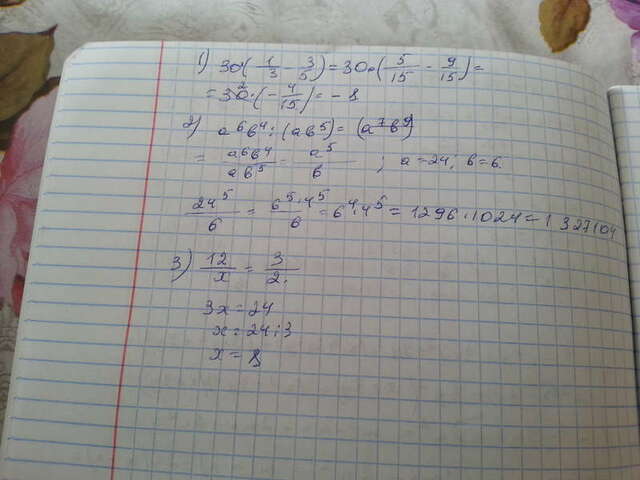 1) 30·(1/3 - 3/5) = 30·(5/15 - 9/15) =
= 30·(-4/15) = -8
2) a⁶b⁴ : (ab⁵) = (a⁷b⁹)
= a⁶b⁴/ab⁵ = a⁵/b ; a = 24, b = 6.
24⁵/6 = 6⁵·4⁵/6 = 6⁴·4⁵ = 1296·1024 = 1 327104
3) 12/x = 3/2.
3x = 24
x = 24:3
x = 8